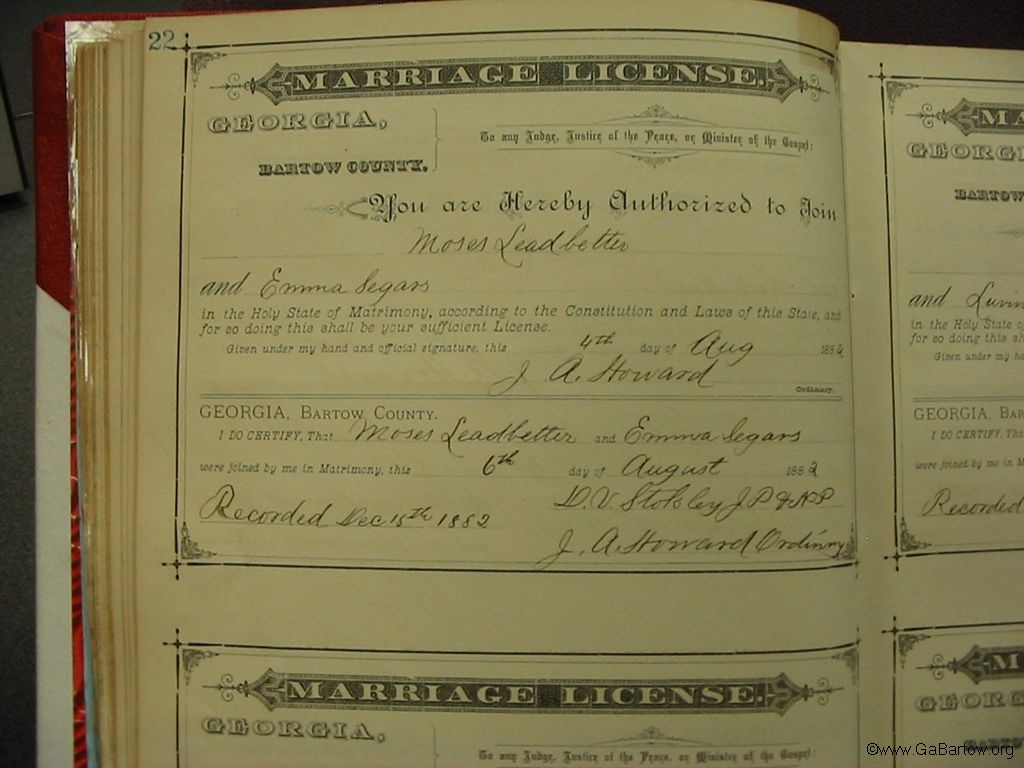 22
MARRIAGE LICENSE.
GEORGIA,
BARTOW COUNTY.
To any Judge, Justice of the Peace, or Minister of the Gospel:
You are Hereby Authorized to Join
Moses Leadbetter
and Emma Segars
in the Holy State of Matrimony, according to the Constitution and Laws of this State, and
for so doing this shall be your sufficient License.
Given under my hand and official signature, this 4th day of Aug 1882
J. A. Howard
Ordinary.
GEORGIA, BARTOW COUNTY.
I DO CERTIFY, That Moses Leadbetter and Emma Segars
were joined by me in Matrimony, this 6th day of August 1882
D. V. Stokley J P & N P
Recorded Dec 15th 1882
J. A. Howard Ordinary
MARRIAGE LICENSE.
GEORGIA,
To any Judge, Justice of the Peace, or Minister of the Gospel:
MA
GEORGIA
BARTOW
and
in the Holy State o
for so doing this sh
Given under my ha
GEORGIA, BAR
I DO CERTIFY, Th
were joined by me in M
Recorded
M
GEORGIA
©www.GaBartow.org